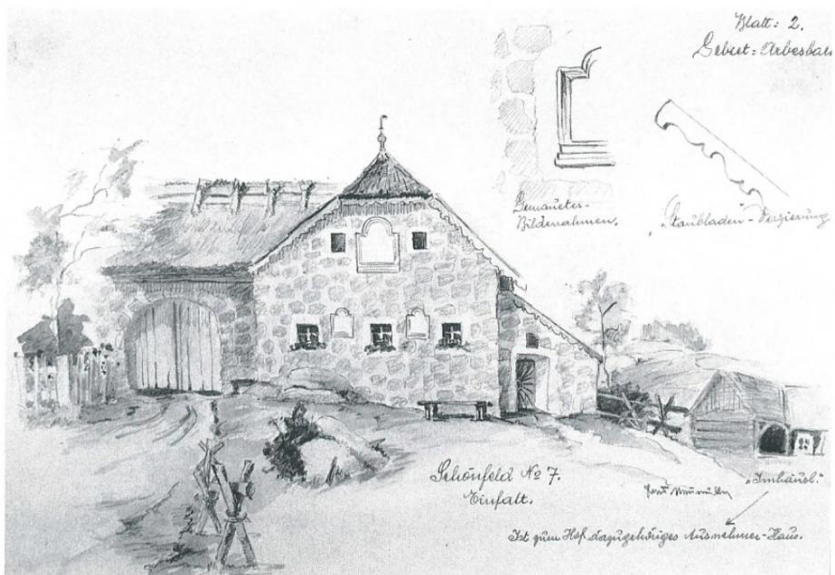 Blatt: 2.
Gebiet: Arbesbach
Gemauerter-
Bilderrahmen.
"Staubladen-Verzierung
Schönfeld No 7.
Einfalt.
"Imhäusl."
Ist zum Hof dazugehöriges Ausnehmer-Haus.